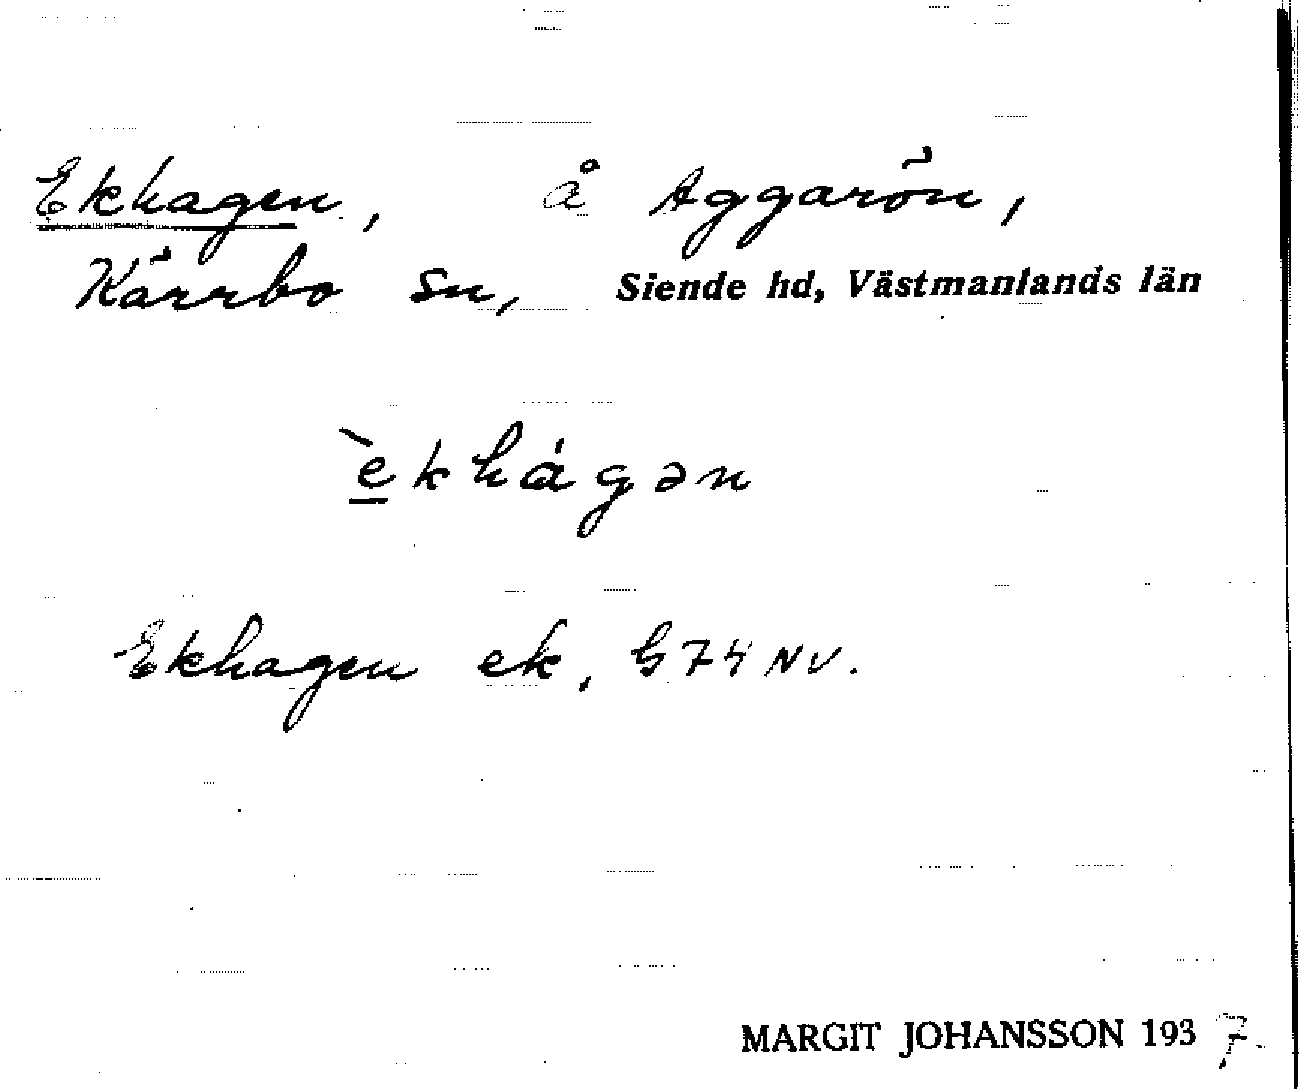 Ekhagen, å Aggarön,
Kärrbo sn, Siende hd, Västmanlands län
è̲khágən
Ekhagen ek. G74 NV.
MARGIT JOHANSSON 1937.